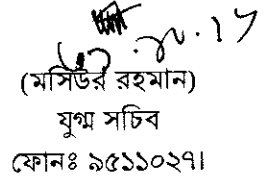 (মসিউর রহমান)
যুগ্ম সচিব
ফোনঃ ৯৫১১০২৭১